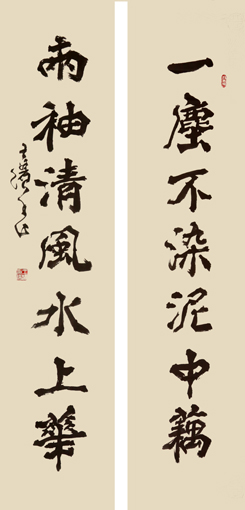 一塵不染泥中藕
兩袖清風水上華